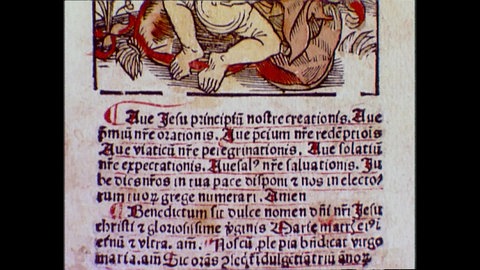 Aue Jesu principiũ nostre creationis. Aue
p̃miũ nr̃e orationis. Aue p̃cium nr̃e redẽptiois
Aue viaticũ nr̃e peregrinationis. Aue solatiũ
nr̃e expectationis. Aue sal⁹ nr̃e saluationis. Ju
be dies nr̃os in tua pace disponi ⁊ nos in electo
rum tuoꝝ grege numerari. Amen
Benedictum sit dulce nomen dñi nr̃i Jesu
christi ⁊ gloriosissime
virginis Marie matr̃
etnũ ⁊ vltra. am̃. Nos cũ ple pia bñdicat virgo
maria. am̃ Sic orãs